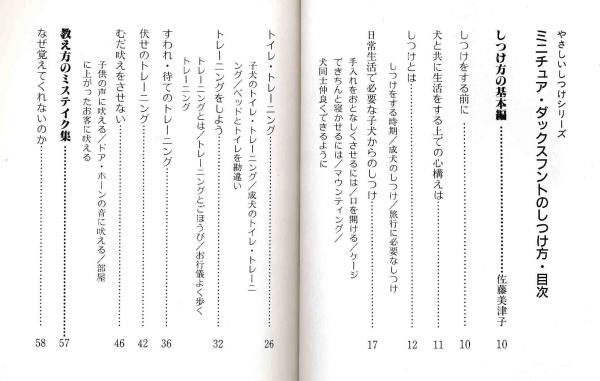 やさしいしつけシリーズ
ミニチュア・ダックスフントのしつけ方・目次
しつけ方の基本編……………………佐藤美津子 10
しつけをする前に……………………10
犬と共に生活をする上での心構えは……………………11
しつけとは……………………12
しつけをする時期／成犬のしつけ／旅行に必要なしつけ
日常生活で必要な子犬からのしつけ……………………17
手入れをおとなしくさせるには／口を開ける／ケージ
できちんと寝かせるには／マウンティング／
犬同士仲良くできるように
トイレ・トレーニング……………………26
子犬のトイレ・トレーニング／成犬のトイレ・トレーニ
ング／ベッドとトイレを勘違い
トレーニングをしよう……………………32
トレーニングとは／トレーニングとごほうび／お行儀よく歩く
トレーニング
すわれ・待てのトレーニング……………………36
伏せのトレーニング……………………42
むだ吠えをさせない……………………46
子供の声に吠える／ドア・ホーンの音に吠える／部屋
に上がったお客に吠える
教え方のミステイク集……………………57
なぜ覚えてくれないのか……………………58